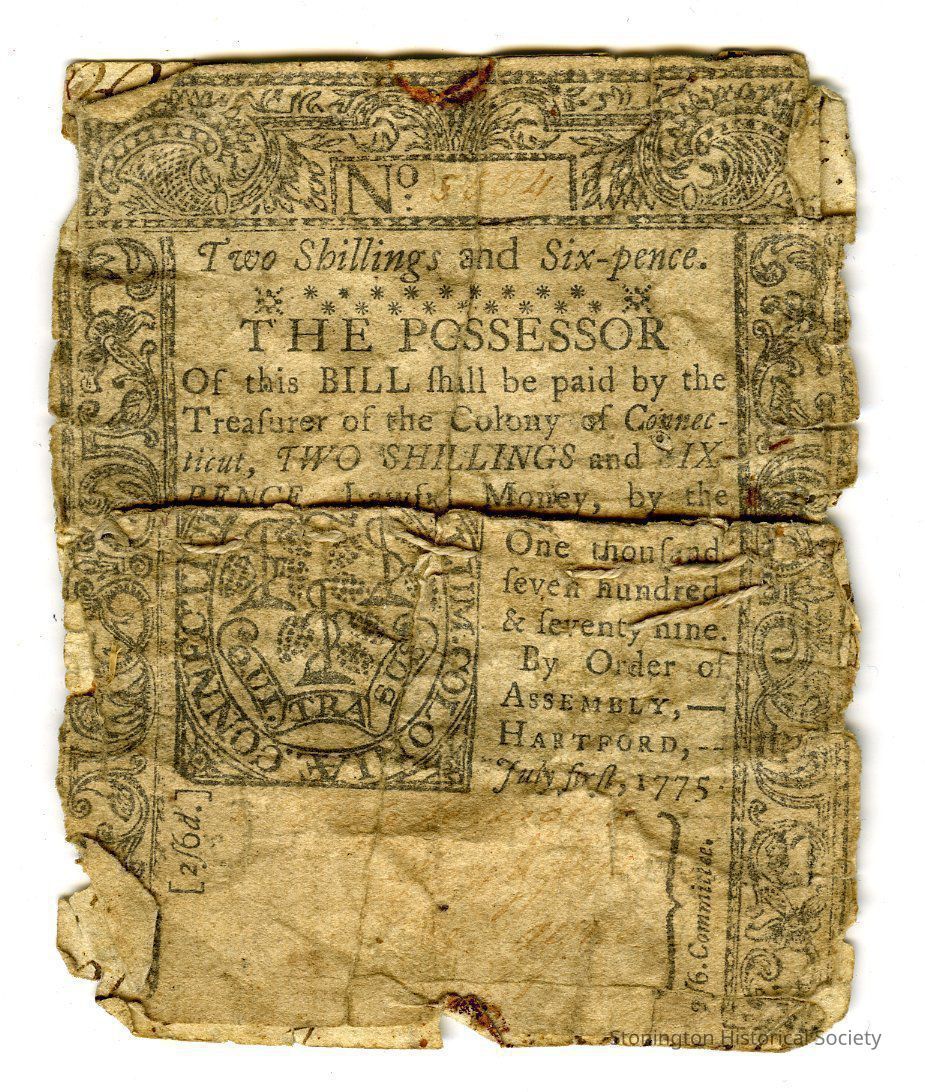 No.
Two Shillings and Six-pence.
THE POSSESSOR
Of this BILL ſhall be paid by the
Treaſurer of the Colony of Connec-
ticut, TWO SHILLINGS and SIX-
PENCE Lawful Money, by the
One thouſand
ſeven hundred
& ſeventy nine.
By Order of
ASSEMBLY,—
HARTFORD,--
July firſt, 1775.
IN TRA BUS
COLON IÆ. CONNECTI
[2ſ6d.]
2ſ6. Committee.
Stonington Historical Society